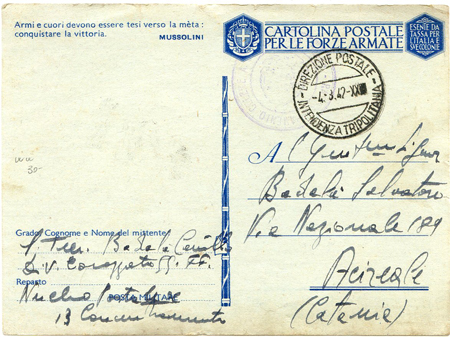 Armi e cuori devono essere tesi verso la mèta:
conquistare la vittoria. MUSSOLINI
CARTOLINA POSTALE
PER LE FORZE ARMATE
ESENTE DA
TASSA PER
L'ITALIA E
LE COLONIE
DIREZIONE POSTALE
-4.3.42-XX
INTENDENZA TRIPOLITANIA
30-
Al
Badalà Salvatore
Via Nazionale 189
Acireale
(Catania)
Grado, Cognome e Nome del mittente
S. Ten. Badalà
Reparto
Nucleo
POSTA MILITARE
13